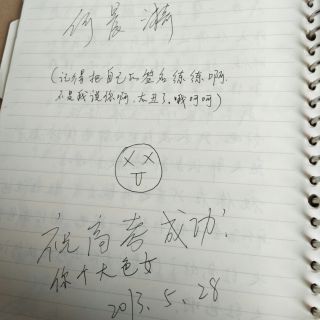 何晨漪
(记得把自己的签名练练啊,
不是我说你啊,太丑了,哦呵呵)
祝高考成功!
你个大色女
2013.5.28